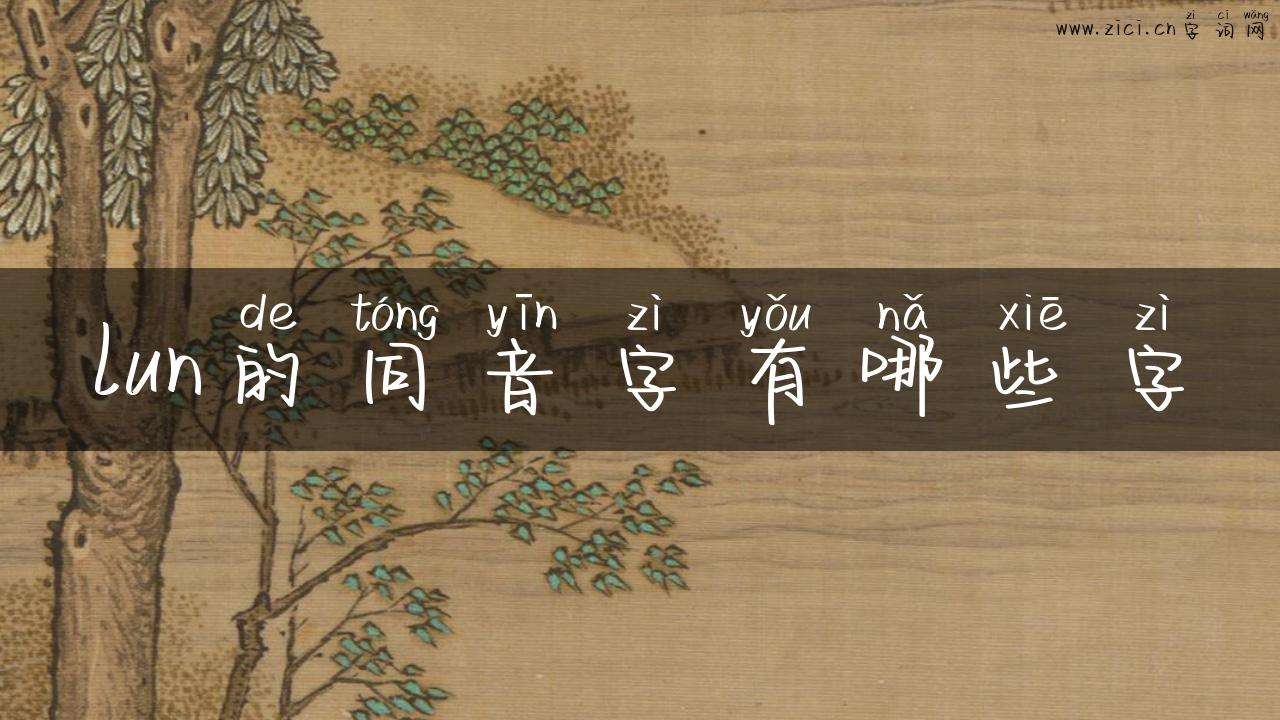 zì cí wǎng
www.zici.cn 字词网
de tóng yīn zì yǒu nǎ xiē zì
lun的同音字有哪些字